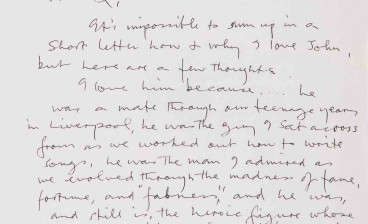 It's impossible to sum up in a
short letter how & why I love John,
but here are a few thoughts
I love him because.... he
was a mate through our teenage years
in Liverpool, he was the guy I sat across
from as we worked out how to write
songs, he was the man I admired as
we evolved through the madness of fame,
fortune, and "fabness", and he was,
and still is, the heroic figure whose